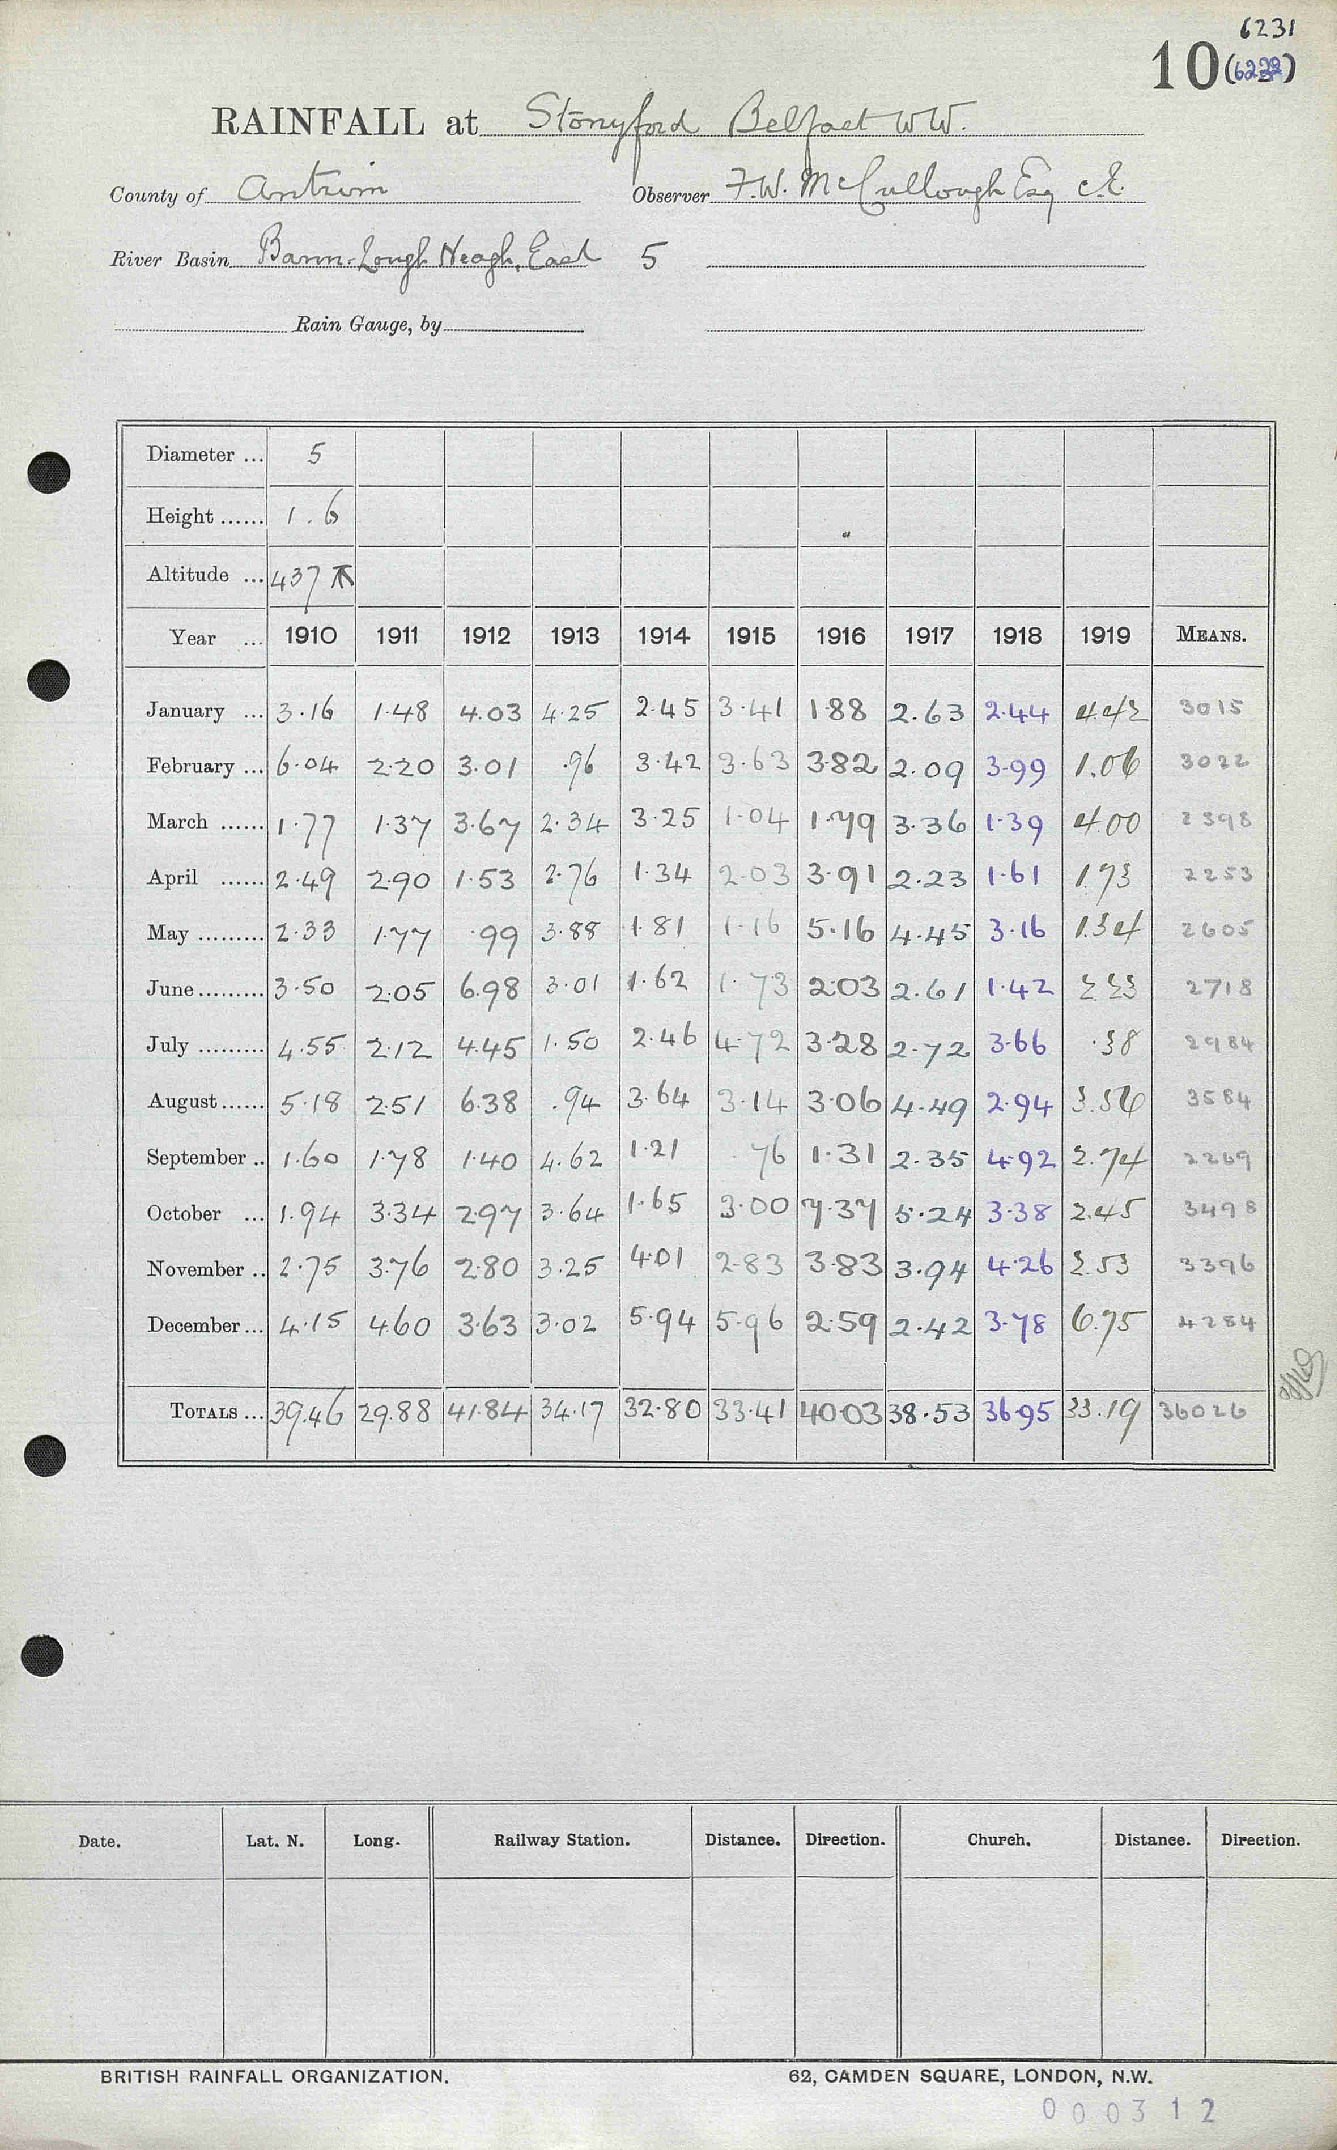 6231
10 (6229)
RAINFALL at Stonyford Belfast W.W.
County of Antrim Observer F.W. McCullough Esq C.E.
River Basin Bann. Lough Neagh, East 5
Rain Gauge, by
Diameter ... 5
Height ...... 1.6
Altitude ... 437
Year ... 1910 1911 1912 1913 1914 1915 1916 1917 1918 1919 MEANS.
January ... 3.16 1.48 4.03 4.25 2.45 3.41 1.88 2.63 2.44 4.42 3015
February ... 6.04 2.20 3.01 .96 3.42 3.63 3.82 2.09 3.99 1.06 3022
March ...... 1.77 1.37 3.67 2.34 3.25 1.04 1.79 3.36 1.39 4.00 2398
April ...... 2.49 2.90 1.53 2.76 1.34 2.03 3.91 2.23 1.61 1.73 2253
May ......... 2.33 1.77 .99 3.88 1.81 1.16 5.16 4.45 3.16 1.34 2605
June ......... 3.50 2.05 6.98 3.01 1.62 1.73 2.03 2.61 1.42 2.23 2718
July ......... 4.55 2.12 4.45 1.50 2.46 4.72 3.28 2.72 3.66 .38 2984
August ...... 5.18 2.51 6.38 .94 3.64 3.14 3.06 4.49 2.94 3.56 3584
September .. 1.60 1.78 1.40 4.62 1.21 .76 1.31 2.35 4.92 2.74 2269
October ... 1.94 3.34 2.97 3.64 1.65 3.00 7.37 5.24 3.38 2.45 3498
November .. 2.75 3.76 2.80 3.25 4.01 2.83 3.83 3.94 4.26 2.53 3396
December ... 4.15 4.60 3.63 3.02 5.94 5.96 2.59 2.42 3.78 6.75 4284
TOTALS ... 39.46 29.88 41.84 34.17 32.80 33.41 40.03 38.53 36.95 33.19 36026
Date. Lat. N. Long. Railway Station. Distance. Direction. Church. Distance. Direction.
BRITISH RAINFALL ORGANIZATION. 62, CAMDEN SQUARE, LONDON, N.W.
000312